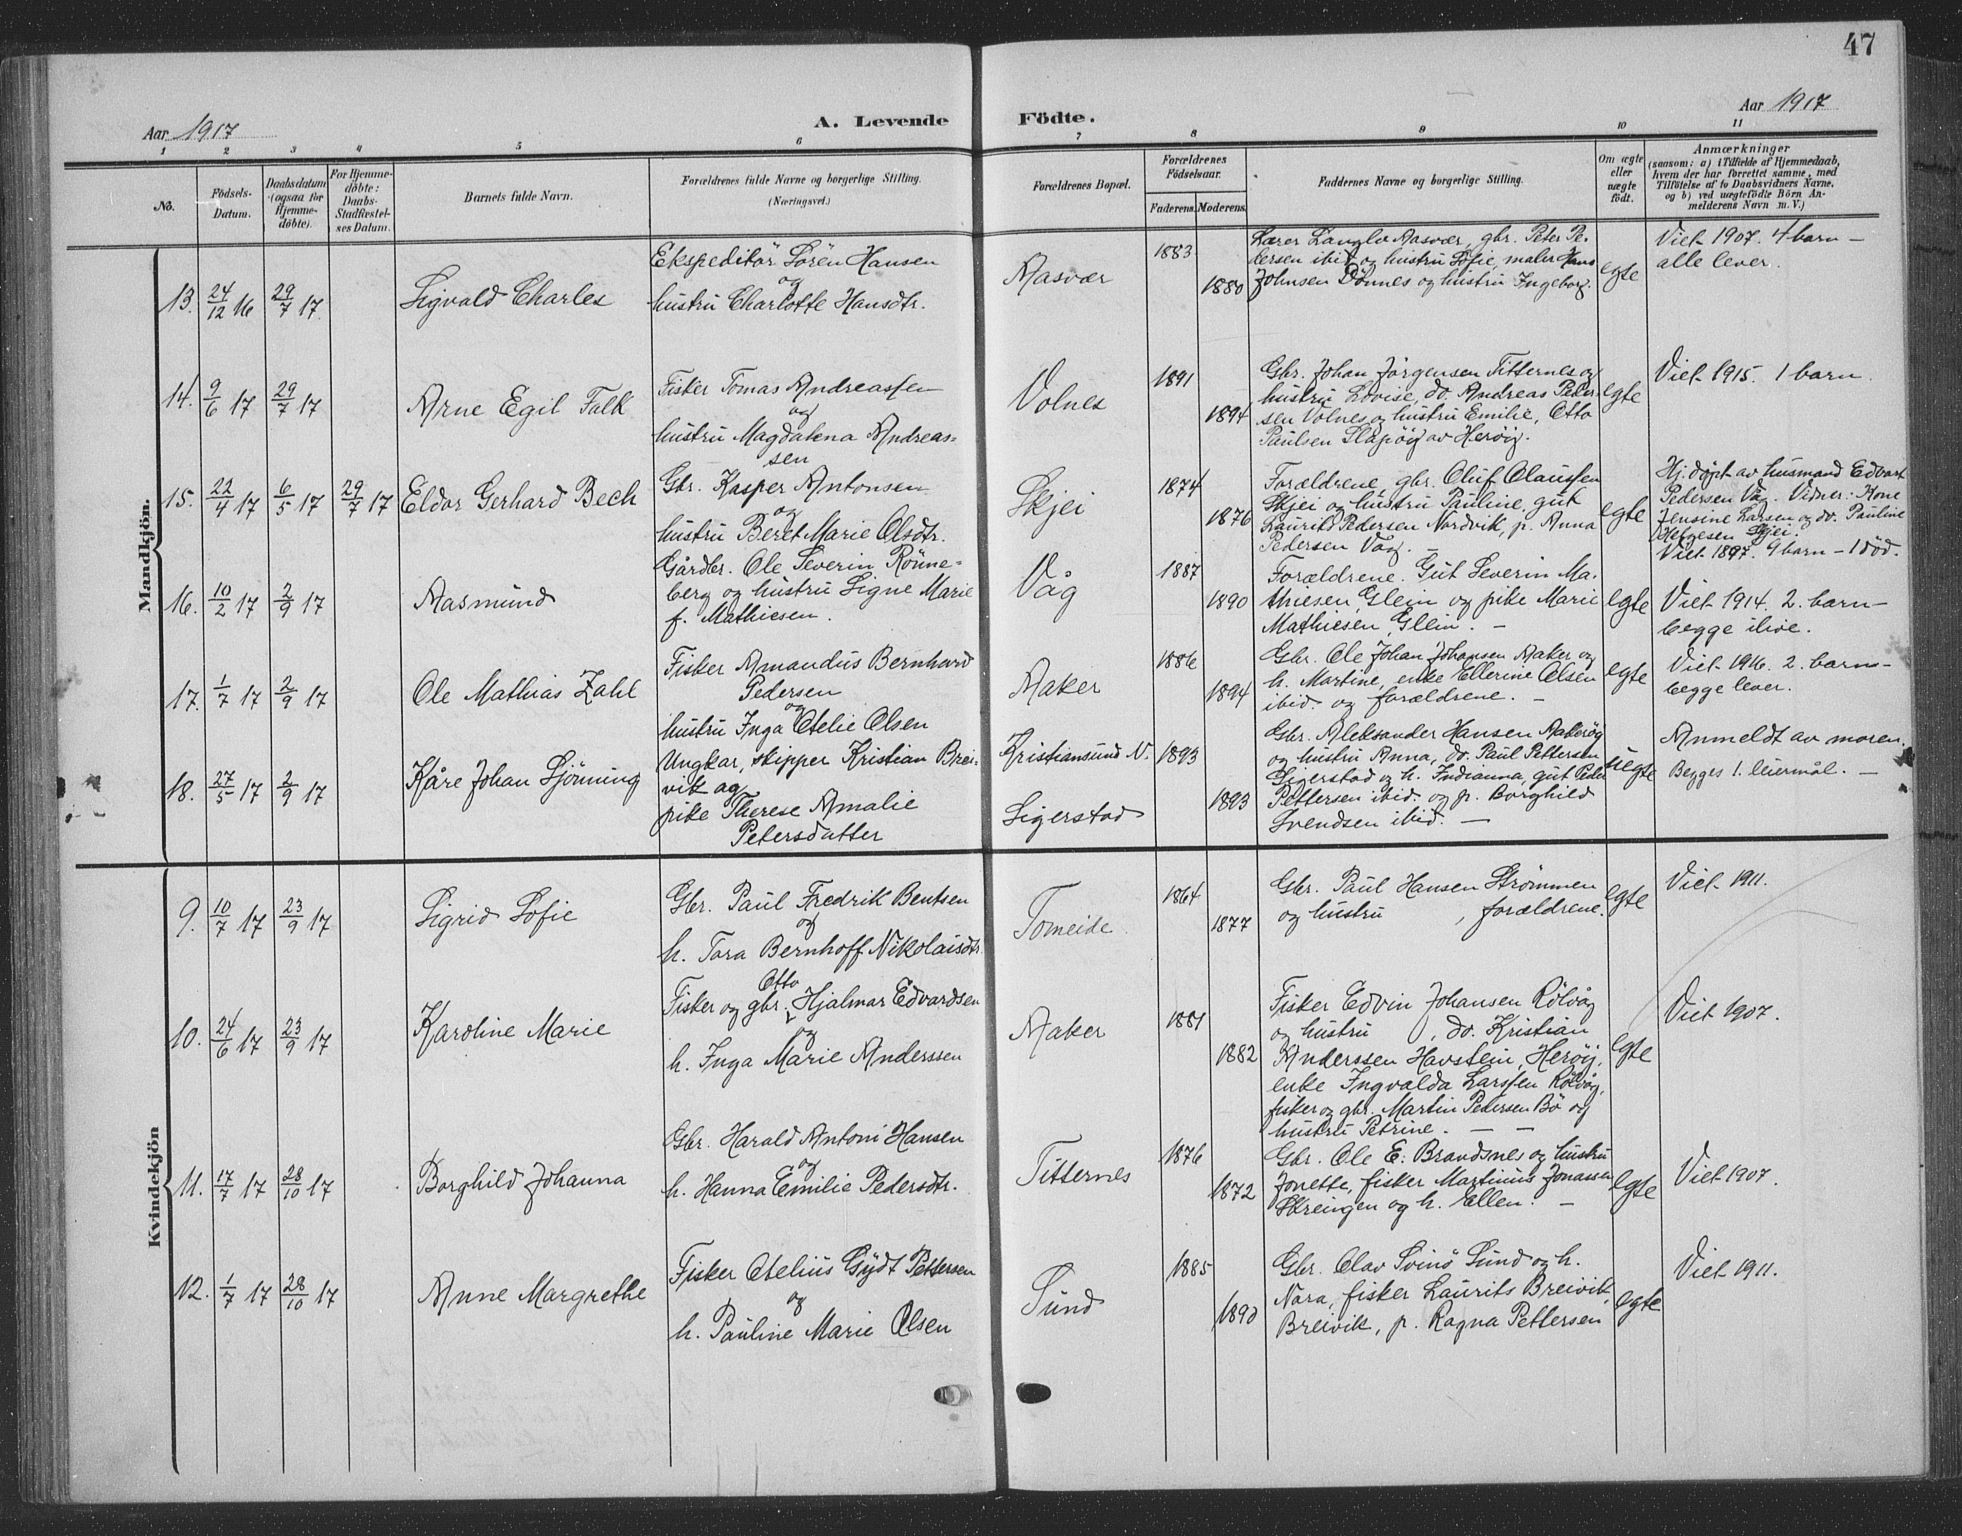 47
Aar 1917
A. Levende Födte.
Aar 1917
1 2 3 4 5 6 7 8 9 10 11
No.
Födsels-
Datum.
Daabsdatum
(ogsaa for
Hjemme-
döbte).
For Hjemme-
döbte:
Daabs-
Stadfæstel-
ses Datum.
Barnets fulde Navn.
Forældrenes fulde Navne og borgerlige Stilling.
(Næringsvei.)
Forældrenes Bopæl.
Forældrenes
Födselsaar.
Faderens. Moderens.
Faddernes Navne og borgerlige Stilling.
Om ægte
eller
uægte
födt.
Anmærkninger
(saasom: a) i Tilfælde af Hjemmedaab,
hvem der har forrettet samme, med
Tilföielse af to Daabsvidners Navne,
og b) ved uægtefödte Börn An-
melderens Navn m. V.)
Mandkjön.
13. 24/12 16 29/7 17.
Sigvald Charles
Ekspeditör Sören Hansen
og
hustru Charlotte Hansdtr.
Aasvær
1883
1880
Lærer Langlo Aasvær, gbr. Peter Pe-
dersen ibid og hustru Sofie, maler Hans
Johnsen Dønnes og hustru Ingeborg.
egte
Viet 1907. 4 barn –
alle lever.
14. 9/6 17 29/7 17
Arne Egil Falk
Fisker Tomas Andreassen
og
hustru Magdalena Andreas-
sen
Volnes
1891
1894
Gbr. Johan Jørgensen Titternes og
hustru Lovise, do. Andreas Peder-
sen Volnes og hustru Emilie, Otto
Paulsen Slapøig av Herøig.
egte
Viet 1915. 1 barn.
15. 22/4 17 6/5 17 29/7 17
Eldor Gerhard Bech
Gbr. Kasper Antonsen
og
hustru Beret Marie Olsdtr.
Skjei
1874
1876
Forældrene, gbr. Oluf Olaussen
Skjei og hustru Pauline, gut
Laurits Pedersen Nordvik, p. Anna
Pedersen Våg. –
egte
Hj. døpt av husmand Edvart
Pedersen Våg. Vidner: Kone
Jensine Larsen og do. Pauline
Helgesen Skjei.
Viet 1897. 9 barn – 1 död.
16. 10/2 17 2/9 17
Aasmund
Gårdbr. Ole Severin Rönne-
berg og hustru Signe Marie
f. Mathiesen.
Våg
1887
1890
Forældrene. Gut Severin Ma-
thiesen, Glein og pike Marie
Mathiesen, Glein. –
egte
Viet 1914. 2. barn –
begge ilive.
17. 1/7 17 2/9 17
Ole Mathias Zahl
Fisker Amandus Bernhard
Pedersen
og
hustru Inga Otelie Olsen
Aaker
1886
1894
Gbr. Ole Johan Johansen Aaker og
h. Martine, enke Ellerine Olsen
ibid. og forældrene. –
egte
Viet 1916. 2. barn –
begge lever.
18. 27/5 17 2/9 17
Kåre Johan Sjönning
Ungkar, skipper Kristian Brei-
vik og
pike Therese Amalie
Petersdatter
Kristiansund N.
Sigerstad
1893
1893
Gbr. Aleksander Hansen Aakerøg
og hustru Anna, do. Paul Pettersen
Sigerstad og h. Indianna, gut Peder
Pettersen ibid. og p. Borghild
Svendsen ibid. –
uegte
Anmeldt av moren.
Begges 1. leiermål. –
Kvindekjön
9. 10/7 17 23/9 17
Sigrid Sofie
Gbr. Paul Fredrik Bentsen
og
h. Tora Bernhoff Nikolaisdtr.
Tomeide
1864
1877
Gbr. Paul Hansen Strømmen
og hustru , forældrene.
egte
Viet 1911.
10. 24/6 17 23/9 17
Karoline Marie
Otto
Fisker og gbr. Hjalmar Edvardsen
og
h. Inga Marie Anderssen
Aaker
1881
1882
Fisker Edvin Johansen Rölvåg
og hustru , do. Kristian
Anderssen Havstein, Herøig,
enke Ingvalda Larssen Rölvåg,
fisker og gbr. Martin Pedersen Bö og
hustru Petrine. – –
egte
Viet 1907.
11. 17/7 17 28/10 17
Borghild Johanna
Gbr. Harald Antoni Hansen
og
h. Hanna Emilie Pedersdtr.
Titternes
1876
1872
Gbr. Ole E. Brandsnes og hustru
Jonette, fisker Martinus Jonassen
Skreingen og h. Ellen. –
egte
Viet 1907.
12. 1/7 17 28/10 17
Anne Margrethe
Fisker Otelius Gydt Pettersen
og
h. Pauline Marie Olsen
Sund
1885
1890
Gbr. Olav Svinö Sund og h.
Nora, fisker Laurits Breivik,
Breivik, p. Ragna Pettersen
egte
Viet 1911.